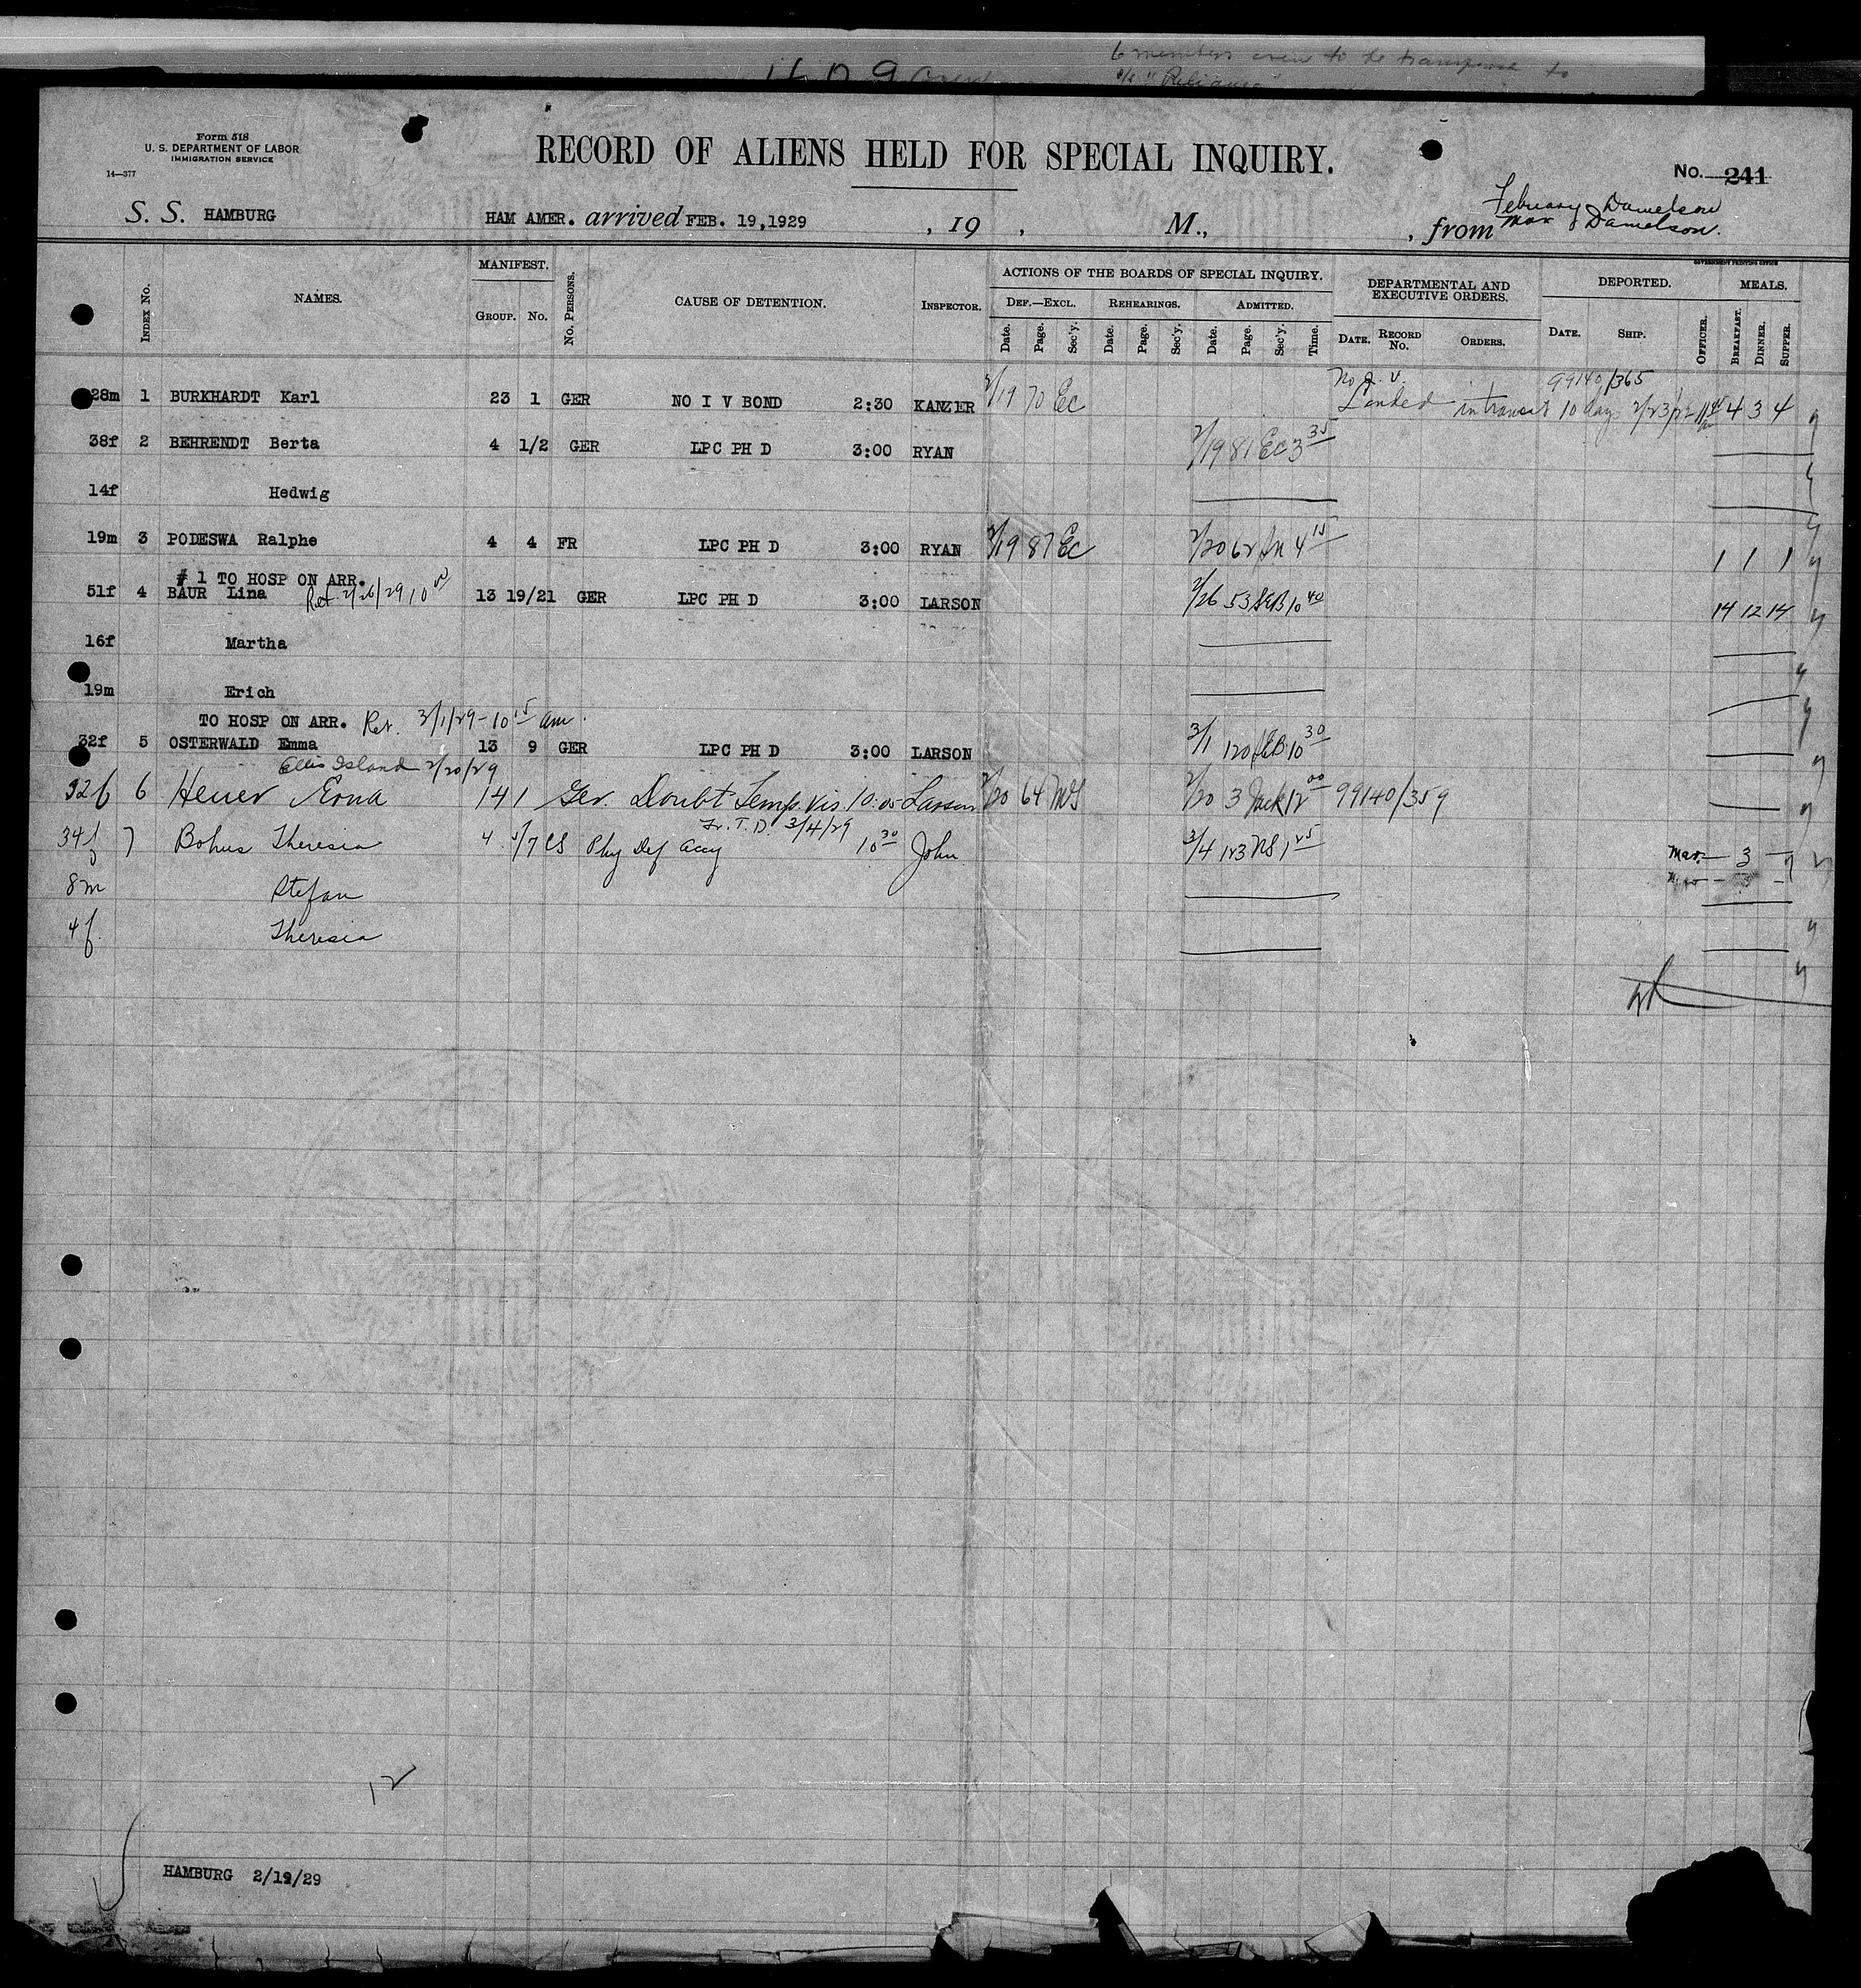 6 members crew to be transferred to
S/S "Reliance"
Form 518
U. S. DEPARTMENT OF LABOR
IMMIGRATION SERVICE
14—377
RECORD OF ALIENS HELD FOR SPECIAL INQUIRY.
No. 241
February Danielson
Mar Danielson.
S. S. HAMBURG HAM AMER. arrived FEB. 19,1929 , 19 , M., , from
GOVERNMENT PRINTING OFFICE
INDEX No. NAMES. MANIFEST. GROUP. No. No. PERSONS. CAUSE OF DETENTION. INSPECTOR. ACTIONS OF THE BOARDS OF SPECIAL INQUIRY. DEPARTMENTAL AND EXECUTIVE ORDERS. DEPORTED. MEALS.
DEF.—EXCL. REHEARINGS. ADMITTED.
Date. Page. Sec'y. Date. Page. Sec'y. Date. Page. Sec'y. Time. DATE. RECORD No. ORDERS. DATE. SHIP. OFFICER. BREAKFAST. DINNER. SUPPER.
No I. V. 99140/365
28m 1 BURKHARDT Karl 23 1 GER NO I V BOND 2:30 KANZER 2/19 70 Ec Landed in transit 10 days 2/23/29 4 3 4
38f 2 BEHRENDT Berta 4 1/2 GER LPC PH D 3:00 RYAN 2/19 81 Ec 3 35
14f Hedwig
19m 3 PODESWA Ralphe 4 4 FR LPC PH D 3:00 RYAN 2/19 87 Ec 2/20 62 4 15 1 1 1
# 1 TO HOSP ON ARR. Ret. 2/26/29 10 00
51f 4 BAUR Lina 13 19/21 GER LPC PH D 3:00 LARSON 2/26 53 10 40 14 12 14
16f Martha
19m Erich
TO HOSP ON ARR. Ret. 3/1/29 - 10 15 am.
32f 5 OSTERWALD Emma 13 9 GER LPC PH D 3:00 LARSON 3/1 120 10 30
Ellis Island 2/20/29
32f 6 Heuer Erna 14 1 Ger. Doubt Temp. Vis. 10:00 Larson 2/20 64 2/20 3 Jack 12 00 99140/359
Fr. T. D. 3/4/29
34f 7 Bohus Theresia 4 5/7 CS Phy Def Accy 10 30 John 3/4 123 NS 1 25 Mar. — 3 —
8m Stefan
4f. Theresia
12
HAMBURG 2/19/29